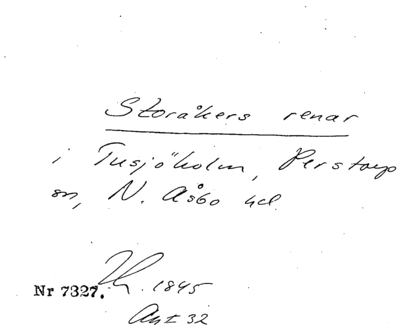 Storåkers renar
i Tusjöholm, Perstorp
sn, N. Åsbo hd.
Nr 7327. Lh. 1845
Akt 32